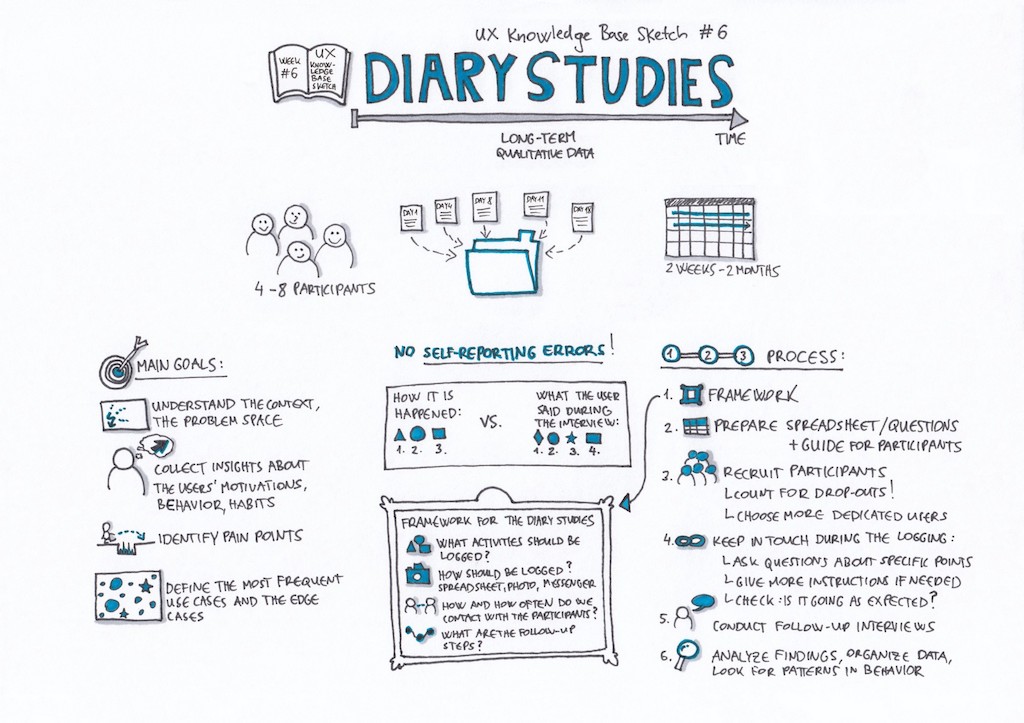 UX Knowledge Base Sketch #6
WEEK
#6
UX
KNOW-
LEDGE
BASE
SKETCH
DIARY STUDIES
LONG-TERM
QUALITATIVE DATA
TIME
4-8 PARTICIPANTS
DAY 1
DAY 4
DAY 8
DAY 11
2 WEEKS - 2 MONTHS
MAIN GOALS:
UNDERSTAND THE CONTEXT,
THE PROBLEM SPACE
COLLECT INSIGHTS ABOUT
THE USERS' MOTIVATIONS,
BEHAVIOR, HABITS
IDENTIFY PAIN POINTS
DEFINE THE MOST FREQUENT
USE CASES AND THE EDGE
CASES
NO SELF-REPORTING ERRORS!
HOW IT IS
HAPPENED:
1. 2. 3.
VS.
WHAT THE USER
SAID DURING
THE INTERVIEW:
1. 2. 3. 4.
FRAMEWORK FOR THE DIARY STUDIES
WHAT ACTIVITIES SHOULD BE
LOGGED?
HOW SHOULD BE LOGGED?
SPREADSHEET, PHOTO, MESSENGER
HOW AND HOW OFTEN DO WE
CONTACT WITH THE PARTICIPANTS?
WHAT ARE THE FOLLOW-UP
STEPS?
1 2 3 PROCESS:
1. FRAMEWORK
2. PREPARE SPREADSHEET/QUESTIONS
+ GUIDE FOR PARTICIPANTS
3. RECRUIT PARTICIPANTS
COUNT FOR DROP-OUTS!
CHOOSE MORE DEDICATED USERS
4. KEEP IN TOUCH DURING THE LOGGING:
ASK QUESTIONS ABOUT SPECIFIC POINTS
GIVE MORE INSTRUCTIONS IF NEEDED
CHECK: IS IT GOING AS EXPECTED?
5. CONDUCT FOLLOW-UP INTERVIEWS
6. ANALYZE FINDINGS, ORGANIZE DATA,
LOOK FOR PATTERNS IN BEHAVIOR